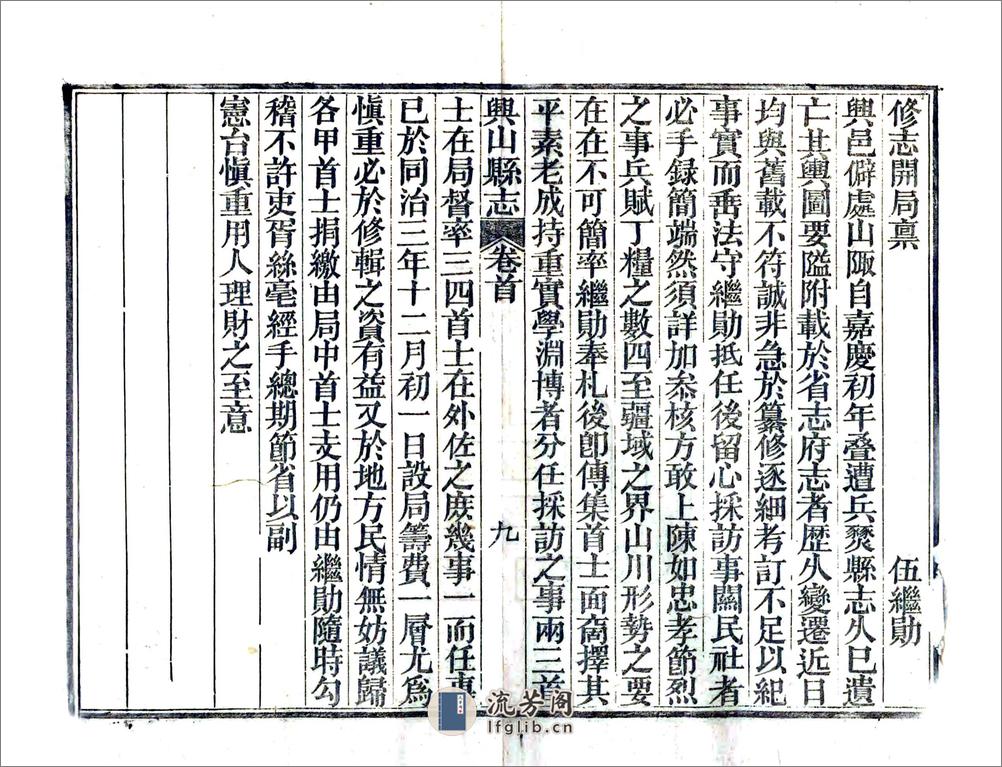 修志開局禀　伍繼勛
興邑僻處山陬自嘉慶初年叠遭兵燹縣志久已遺
亡其輿圖要隘附載於省志府志者歷久變遷近日
均與舊載不符誠非急於纂修逐細考訂不足以紀
事實而垂法守繼勛抵任後留心採訪事關民社者
必手録簡端然須詳加叅核方敢上陳如忠孝節烈
之事兵賦丁糧之數四至疆域之界山川形勢之要
在在不可簡率繼勛奉札後卽傳集首士面商擇其
平素老成持重實學淵博者分任採訪之事兩三首
興山縣志　卷首　九
士在局督率三四首士在外佐之庻幾事一而任專
已於同治三年十二月初一日設局籌費一層尤爲
愼重必於修輯之資有益又於地方民情無妨議歸
各甲首士捐繳由局中首士支用仍由繼勛隨時勾
稽不許吏胥絲毫經手總期節省以副
憲台愼重用人理財之至意
流芳阁
lfglib.cn